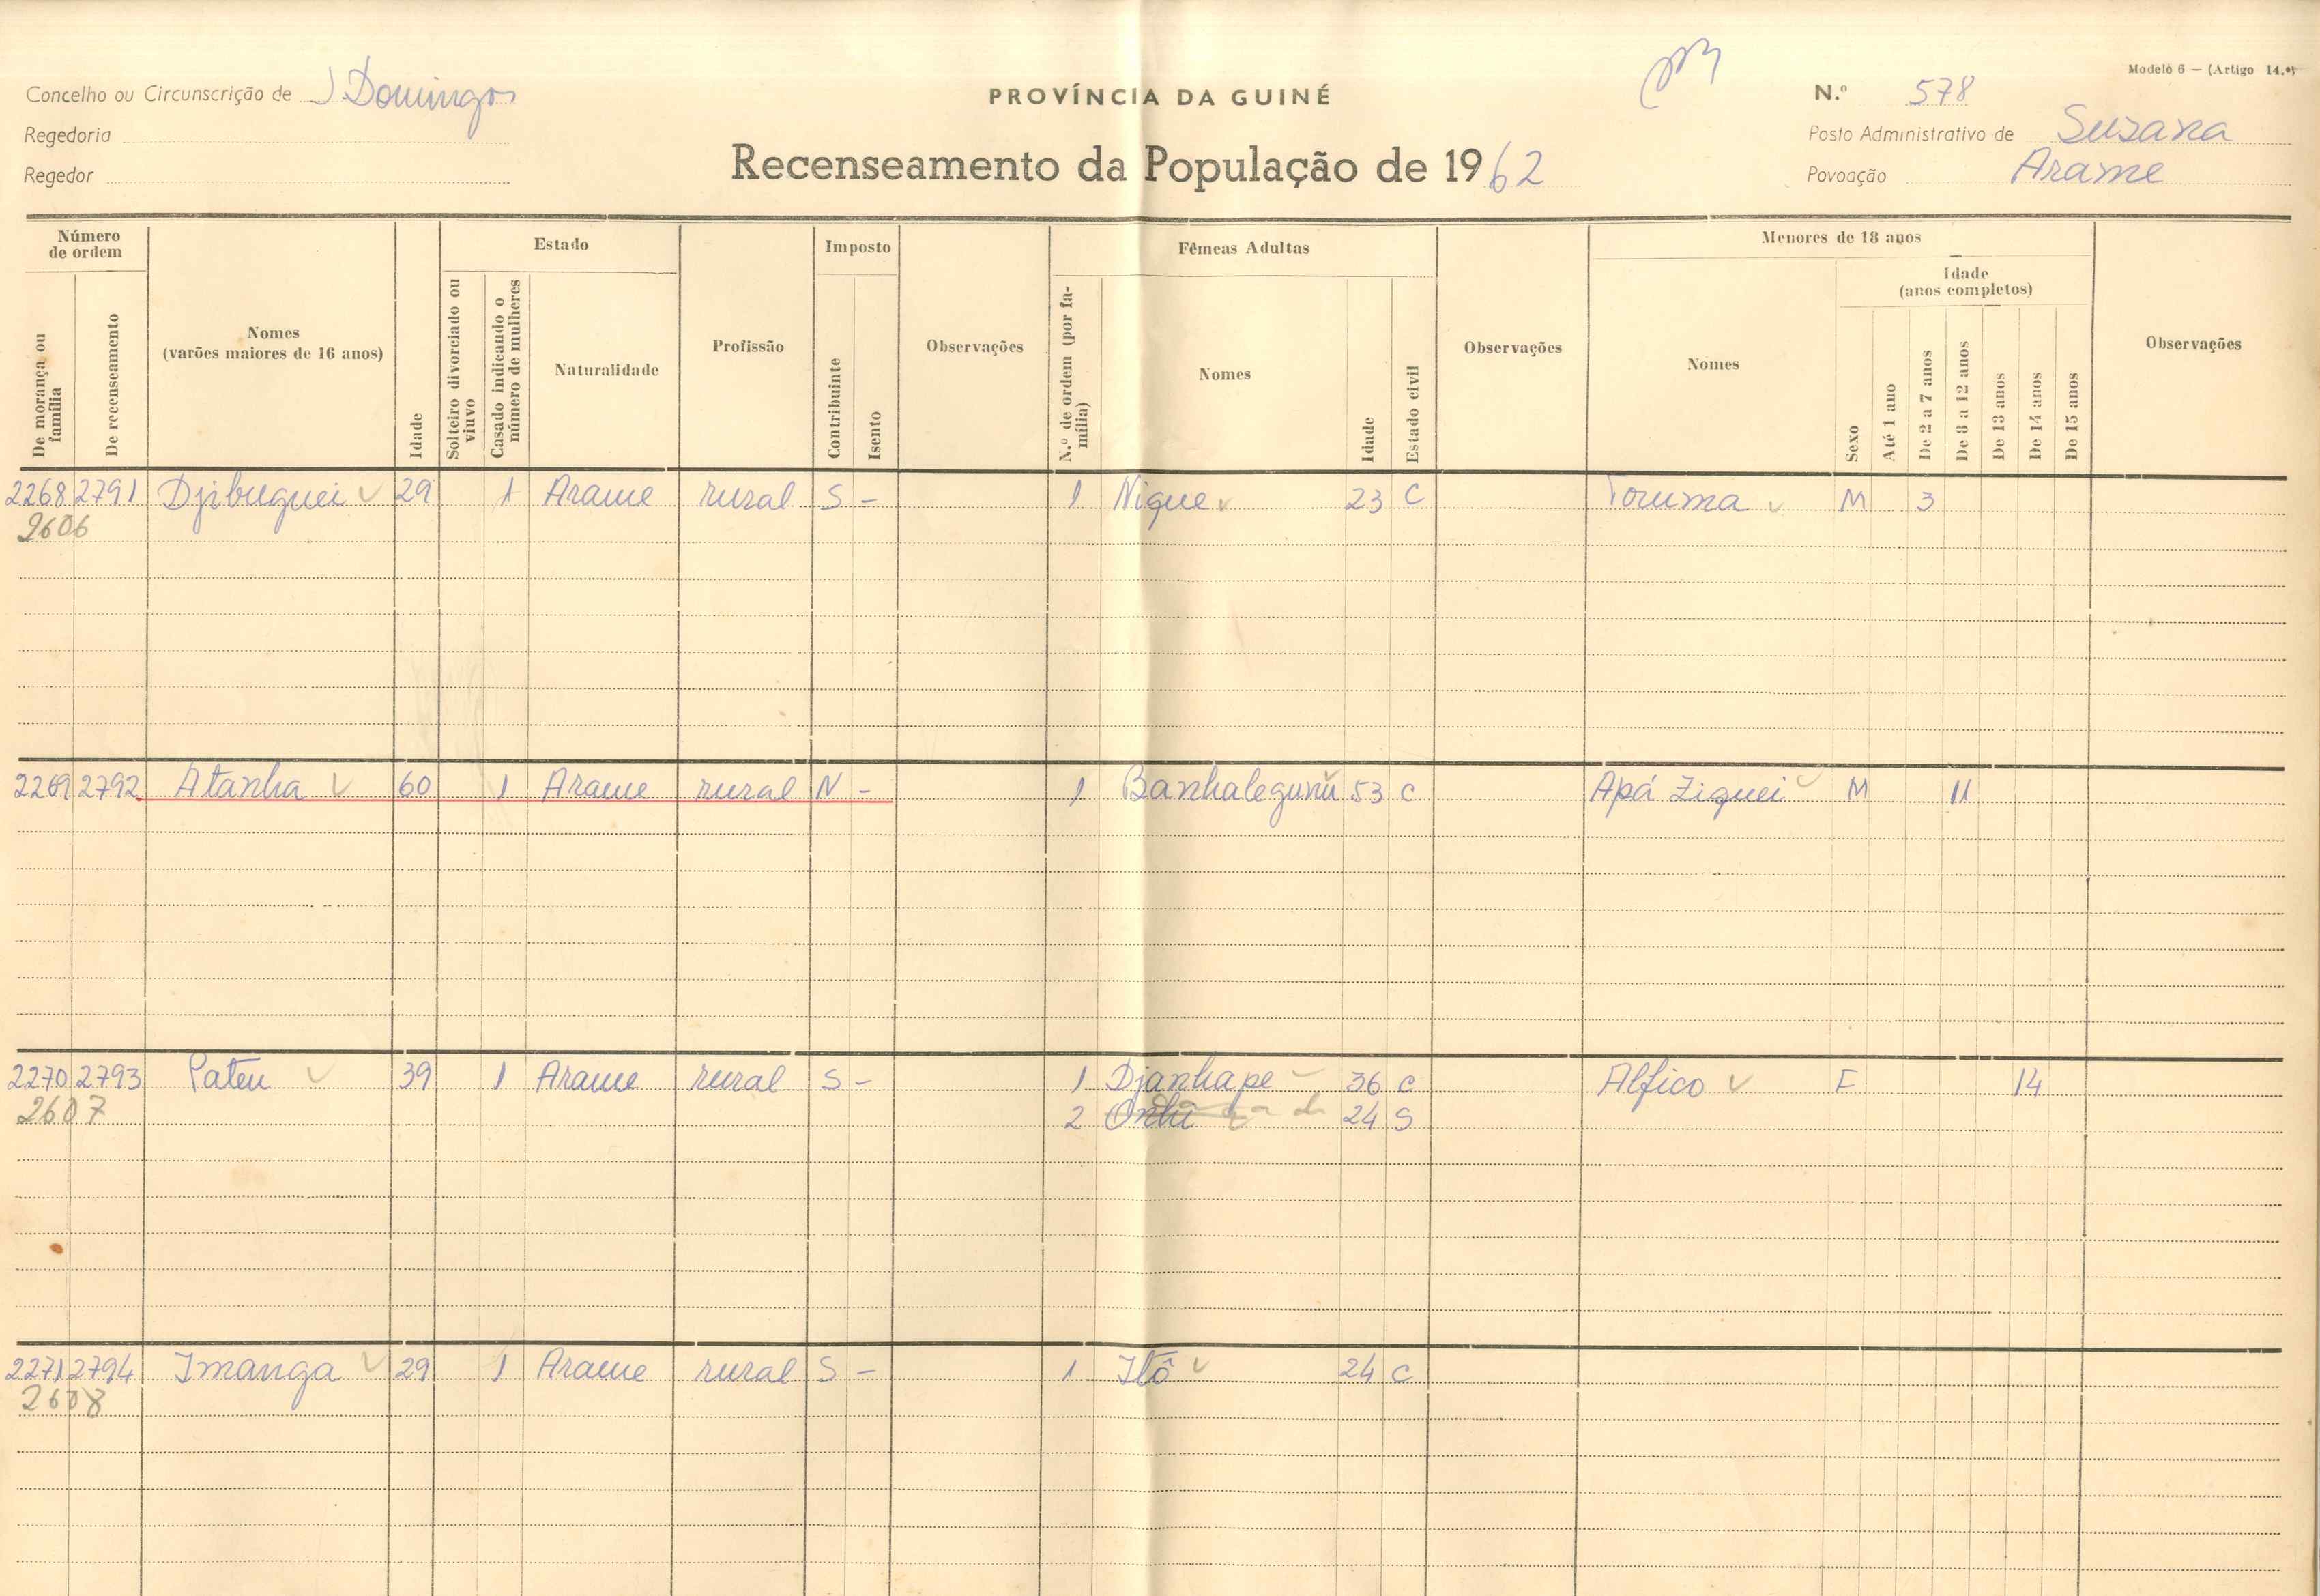 Modelo 6 — (Artigo 14.º)
Concelho ou Circunscrição de S Domingos
PROVÍNCIA DA GUINÉ
N.º 578
Regedoria
Posto Administrativo de Suzana
Regedor
Recenseamento da População de 1962
Povoação Arame
Número de ordem
Estado
Imposto
Fêmeas Adultas
Menores de 18 anos
Idade (anos completos)
De morança ou família
De recenseamento
Nomes (varões maiores de 16 anos)
Idade
Solteiro divorciado ou viuvo
Casado indicando o número de mulheres
Naturalidade
Profissão
Contribuinte
Isento
Observações
N.º de ordem (por família)
Nomes
Idade
Estado civil
Observações
Nomes
Sexo
Até 1 ano
De 2 a 7 anos
De 8 a 12 anos
De 13 anos
De 14 anos
De 15 anos
Observações
2268 2791 Djibuguei 29 1 Arame rural S - 1 Nique 23 C Toruma M 3
2606
2269 2792 Atanha 60 1 Arame rural N - 1 Banhalegunu 53 C Apá Ziguei M 11
2270 2793 Pateu 39 1 Arame rural S - 1 Djanhape 36 C Alfico F 14
2607 2 Onhi 24 S
2271 2794 Imanga 29 1 Arame rural S - 1 Itô 24 C
2608